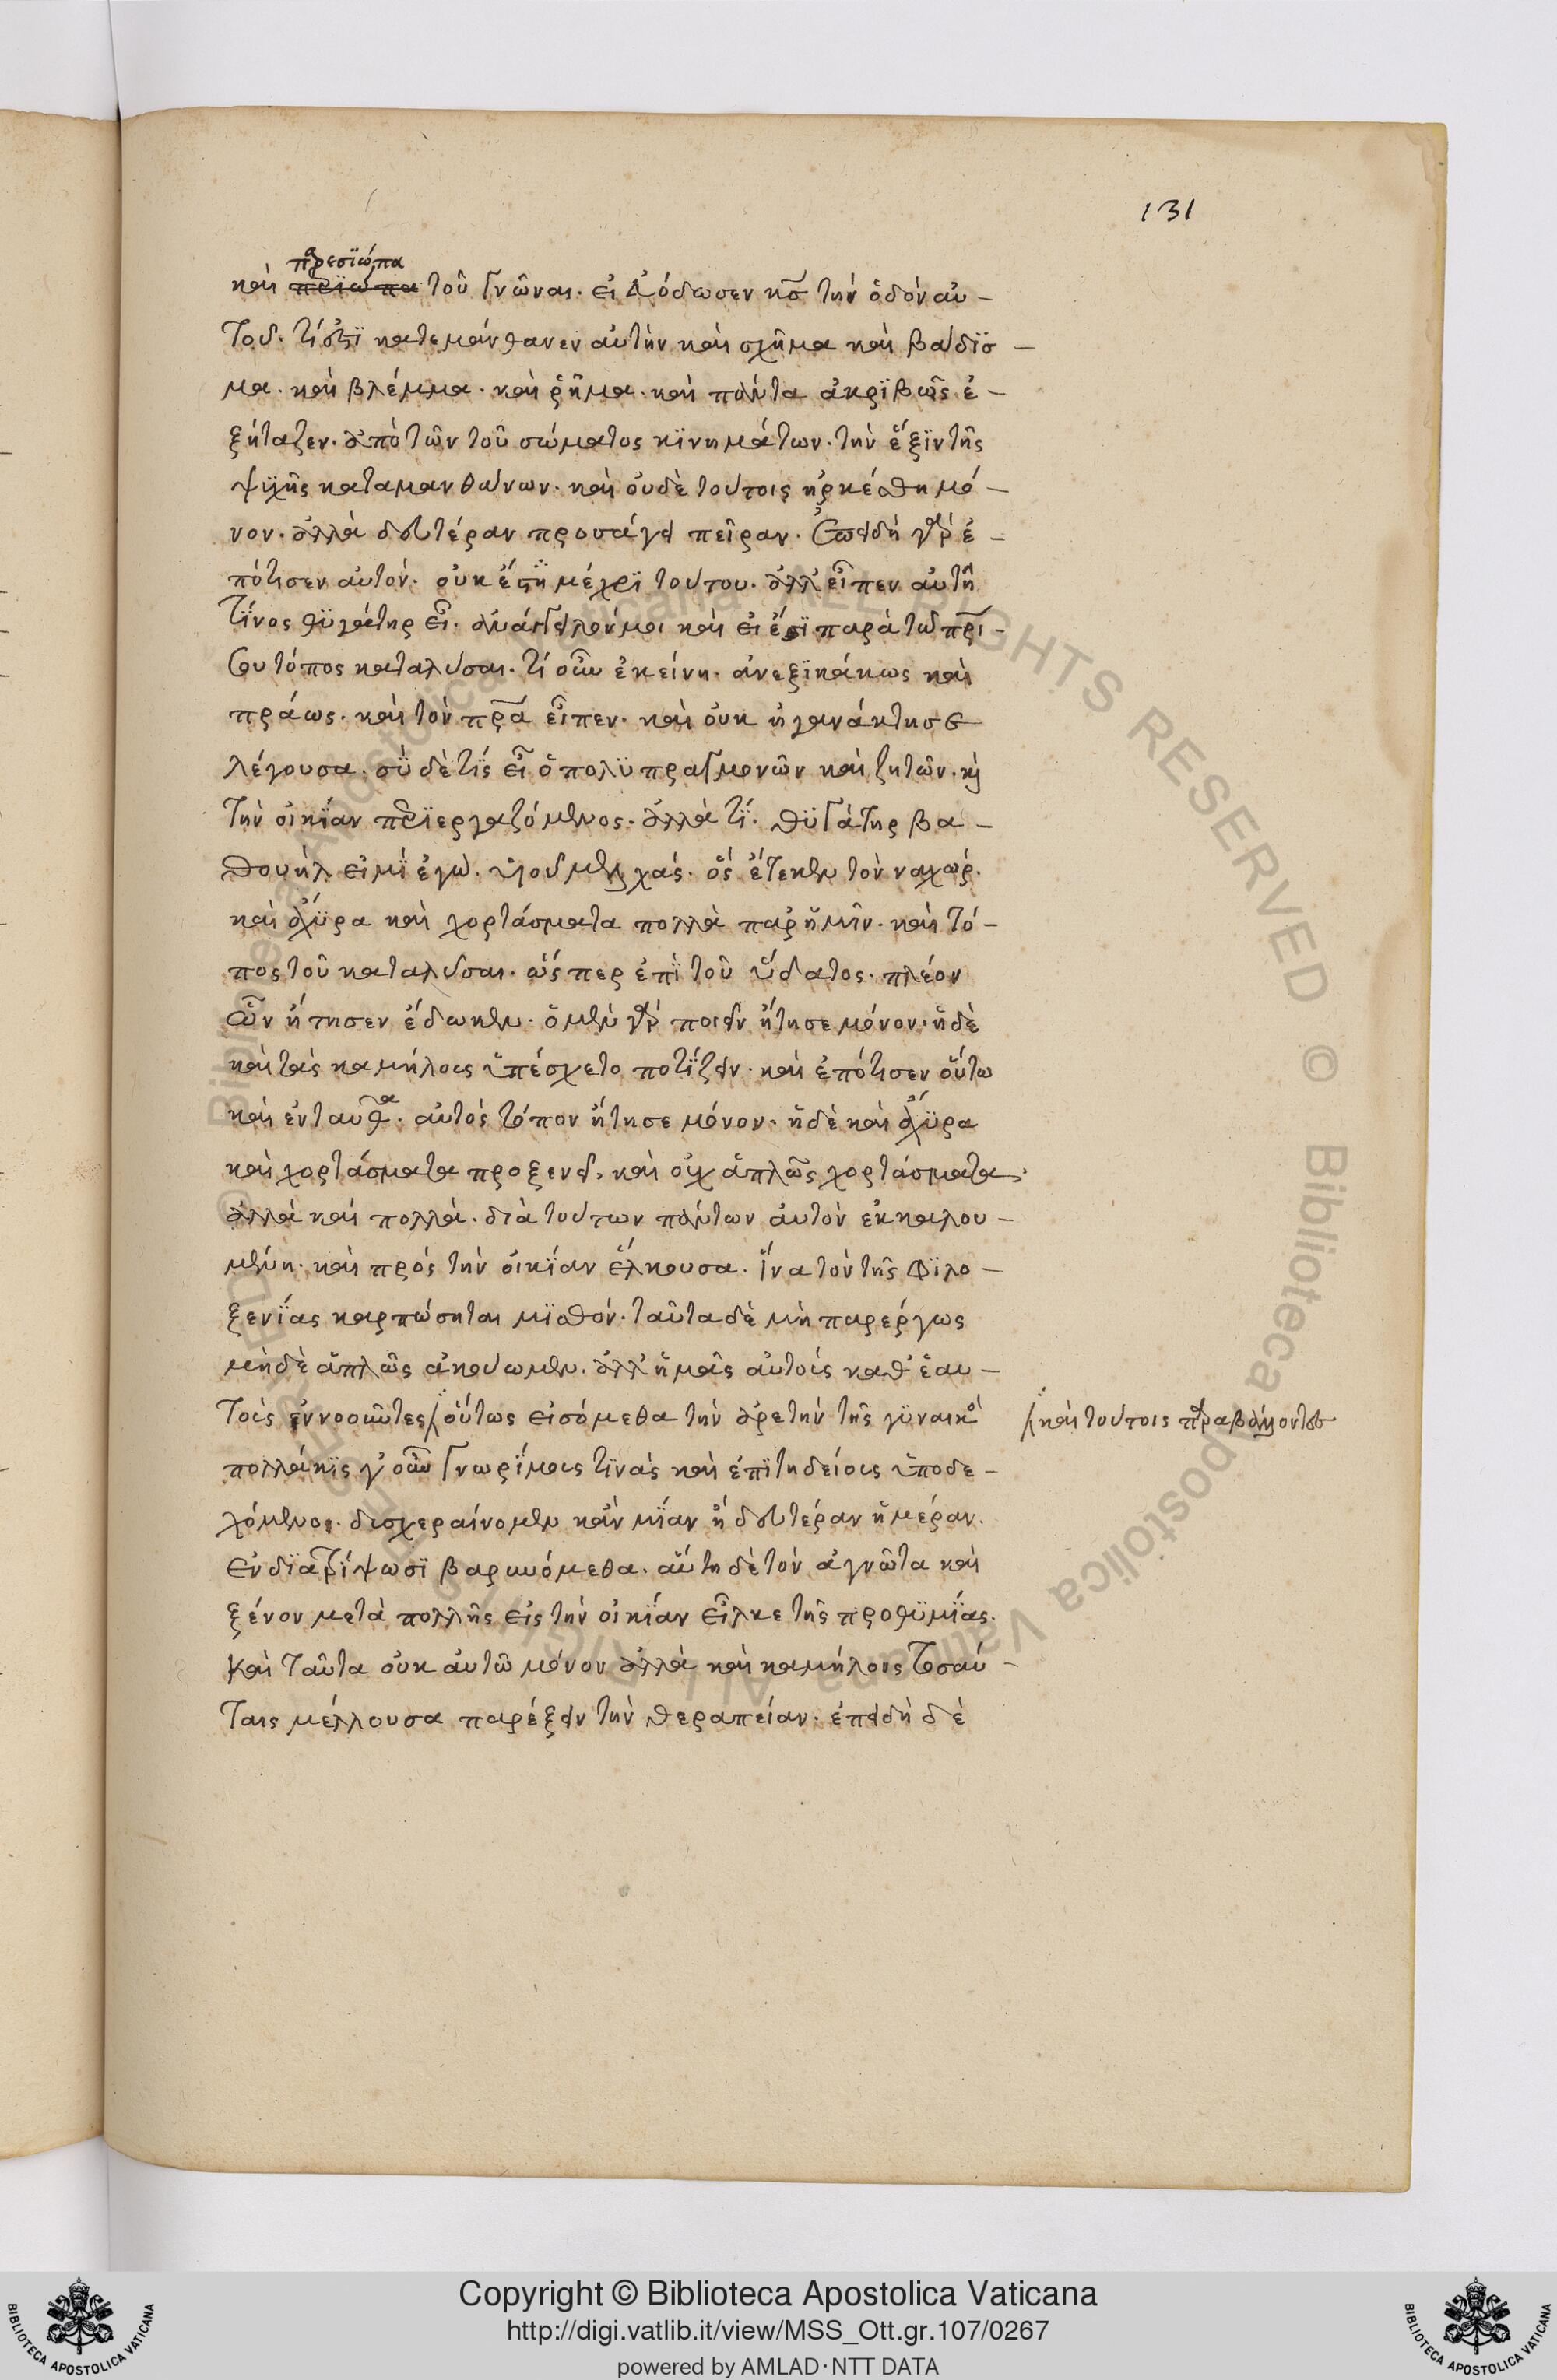 131
παρεσιώπα
καὶ περϊιώπα τοῦ γνῶναι. εἰ εὐόδωσεν κσ τὴν ὁδὸν αὐ-
τοῦ. τί ἐστϊ κατεμάνθανεν αὐτὴν καὶ σχῆμα καὶ βάδϊσ-
μα. καὶ βλέμμα. καὶ ῥῆμα. καὶ πάντα ἀκρϊβῶς ἐ-
ξήταζεν. ἀπὸ τῶν τοῦ σώματος κϊνημάτων. τὴν ἕξϊν τῆς
ψϋχῆς καταμανθάνων. καὶ οὐδὲ τούτοις ἠρκέσθη μό-
νον. ἀλλὰ δευτέραν προσάγει πεῖραν. ἐπειδὴ γὰρ ἐ-
πότισεν αὐτόν. οὐκ ἔστη μέχρϊ τούτου. ἀλλ' εἶπεν αὐτῆ
τίνος θϋγάτηρ εἶ. ἀνάγγειλόν μοι καὶ εἰ ἔστϊ παρὰ τῶ πρί
σου τόπος καταλῦσαι. τί οὖν ἐκείνη. ἀνεξϊκάκως καὶ
πράως. καὶ τὸν πρα εἶπεν. καὶ οὐκ ἠγανάκτησε
λέγουσα. σϋ δὲ τϊς εἶ ὁ πολϋπραγμονῶν καὶ ζητῶν. κὶ
τὴν οἰκίαν περϊεργαζόμενος. ἀλλὰ τϊ. θϋγάτηρ βα-
θουὴλ εἰμϊ ἐγὼ. υἱοῦ μελχάς. ὃς ἔτεκεν τὸν ναχώρ.
καὶ ἄχϋρα καὶ χορτάσματα πολλὰ παρ' ἡμῖν. καὶ τό-
πος τοῦ καταλῦσαι. ὥσπερ ἐπϊ τοῦ ὕδατος. πλέον
ὧν ἤτησεν ἔδωκεν. ὁ μὲν γὰρ πιεῖν ἤτησε μόνον. ἡ δὲ
καὶ τὰς καμήλους ὑπέσχετο ποτϊζειν. καὶ ἐπότισεν οὕτω
καὶ ἐνταῦθα. αὐτὸς τόπον ἤτησε μόνον. ἡ δὲ καὶ ἄχϋρα
καὶ χορτάσματα προξενεῖ, καὶ οὐχ ἁπλῶς χορτάσματα.
ἀλλὰ καὶ πολλὰ. διὰ τούτων πάντων αὐτὸν ἐκκαλου-
μένη. καὶ πρὸς τὴν οἰκϊαν ἕλκουσα. ἵνα τὸν τῆς φϊλο-
ξενϊας καρπώσηται μϊσθόν. ταῦτα δὲ μὴ παρέργως
μηδὲ ἁπλῶς ἀκούωμεν. ἀλλ' ἡμᾶς αὐτοὺς καθ' ἑαυ-
τοὺς ἐννοοῦντες / οὕτως εἰσόμεθα τὴν ἀρετὴν τῆς γϋναικὸ
/ καὶ τούτοις παραβάλλοντες
πολλάκϊς γ' οὖν γνωρίμους τϊνὰς καὶ ἐπϊτηδείους ὑποδε-
χόμενοι. δυσχεραίνομεν κἂν μϊαν ἢ δευτέραν ἡμέραν.
ἐνδϊατρίψωσϊ βαρυνόμεθα. αὕτη δὲ τὸν ἀγνῶτα καὶ
ξένον μετὰ πολλῆς εἰς τὴν οἰκϊαν εἷλκε τῆς προθϋμϊας.
καὶ ταῦτα οὐκ αὐτῶ μόνον ἀλλὰ καὶ καμήλοις τοσαύ-
ταις μέλλουσα παρέξειν τὴν θεραπείαν. ἐπειδὴ δὲ
Copyright © Biblioteca Apostolica Vaticana
http://digi.vatlib.it/view/MSS_Ott.gr.107/0267
powered by AMLAD·NTT DATA